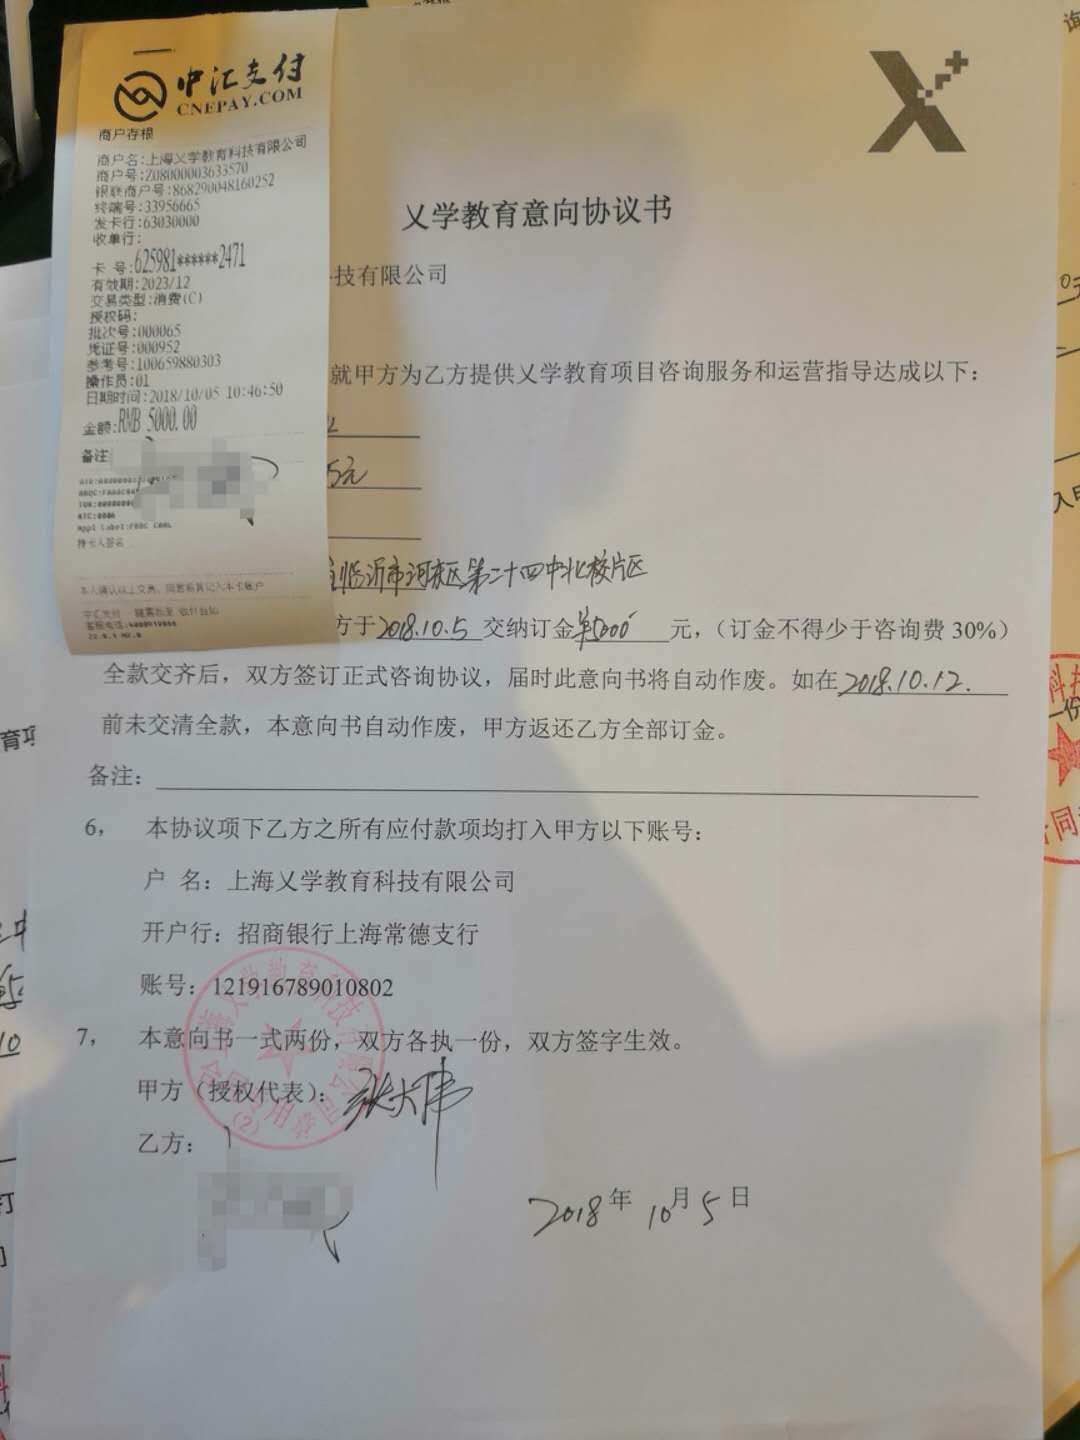 中汇支付
CNEPAY.COM
商户存根
商户名:上海乂学教育科技有限公司
商户号:Z08000003633570
银联商户号:868290048160252
终端号:33956665
发卡行:63030000
收单行:
卡 号:625981******2471
有效期:2023/12
交易类型:消费(C)
授权码:
批次号:000065
凭证号:000952
参考号:100659880303
操作员:01
日期时间:2018/10/05 10:46:50
金额:RMB 5000.00
备注
ATC:0006
持卡人签名
本人确认以上交易，同意将其记入本卡账户
X+
乂学教育意向协议书
技有限公司
就甲方为乙方提供乂学教育项目咨询服务和运营指导达成以下：
5元
临沂市河东区第二十四中北校片区
方于2018.10.5 交纳订金¥5000 元，（订金不得少于咨询费 30%）
全款交齐后，双方签订正式咨询协议，届时此意向书将自动作废。如在2018.10.12.
前未交清全款，本意向书自动作废，甲方返还乙方全部订金。
备注：
6， 本协议项下乙方之所有应付款项均打入甲方以下账号：
户 名：上海乂学教育科技有限公司
开户行：招商银行上海常德支行
账号：121916789010802
7， 本意向书一式两份，双方各执一份，双方签字生效。
甲方（授权代表）：张大伟
乙方：
2018年 10月 5日
上海乂学教育科技有限公司
合同专用章
(2)